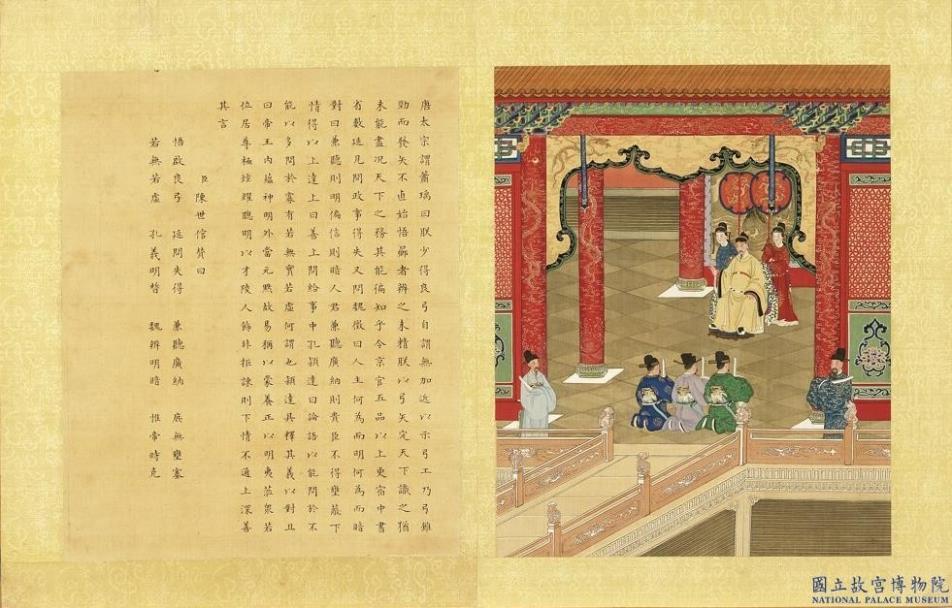 唐太宗謂蕭瑀曰朕少得良弓自謂無加近以示弓工乃弓雖
勁而發矢不直始悟曏者辨之未精朕以弓矢定天下識之猶
未能盡況天下之務其能徧知乎令京官五品以上更宿中書
省數延見問政事得失又問魏徵曰人主何為而明何為而暗
對曰兼聽則明偏信則暗人君兼聽廣納則貴臣不得壅蔽下
情得以上達上曰善上問給事中孔穎達曰論語以能問於不
能以多問於寡有若無實若虛何謂也穎達具釋其義以對且
曰帝王內蘊神明外當元默故易稱以蒙養正以明夷蒞衆若
位居尊極炫耀聰明以才陵人飾非拒諫則下情不通上深善
其言
臣陳世信贊曰
悟啟良弓 延問失得 兼聽廣納 庶無壅塞
若無若虛 孔義明晳 魏辨明暗 惟帝時克
國立故宮博物院
NATIONAL PALACE MUSEUM